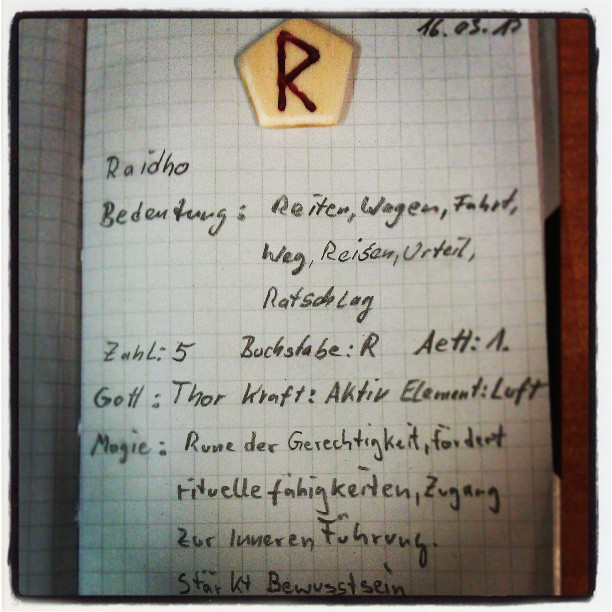 16.03.17
R
Raidho
Bedeutung: Reiten, Wagen, Fahrt,
Weg, Reisen, Urteil,
Ratschlag
Zahl: 5 Buchstabe: R Aett: 1.
Gott: Thor Kraft: Aktiv Element: Luft
Magie: Rune der Gerechtigkeit, fördert
rituelle fähigkeiten, Zugang
zur Inneren Führung.
Stärkt Bewusstsein